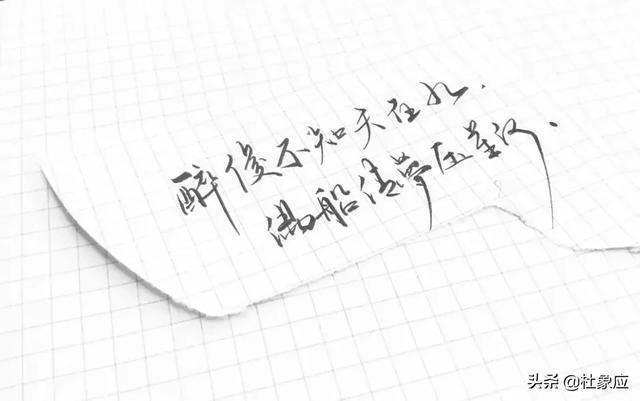 醉後不知天在水.
满船清夢压星河.
头条 @杜象应